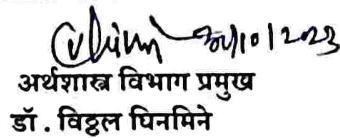 30/10/2023
अर्थशास्त्र विभाग प्रमुख
डॉ. विठ्ठल घिनमिने